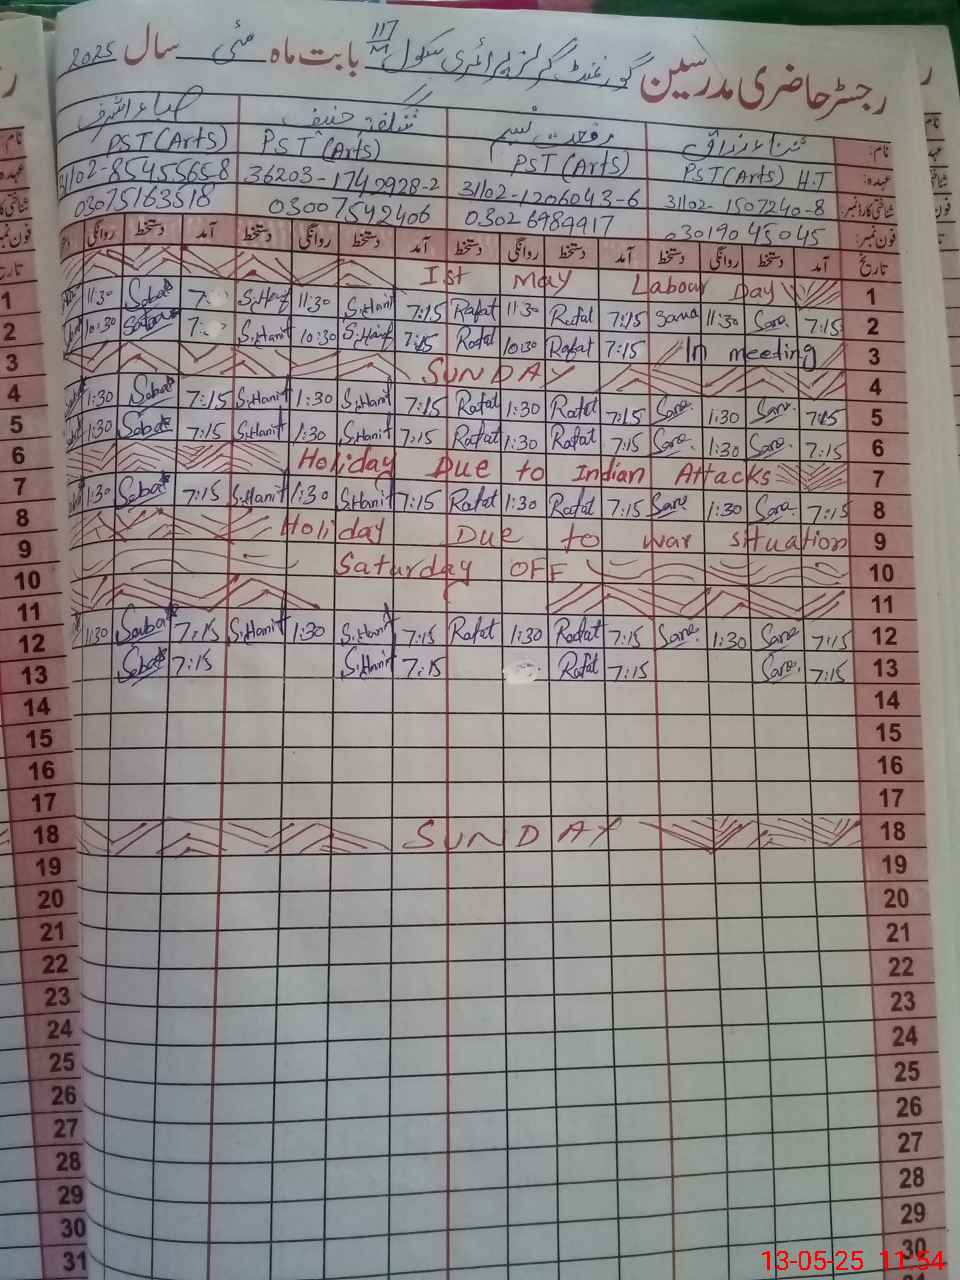 رجسٹر حاضری مدرسین گورنمنٹ گرلز پرائمری سکول 117/M بابت ماہ مئی سال 2025
نام: ثناء رزاق رفعت نسیم شگفتہ حنیف صباء اشرف
عہدہ: PST (Arts) H.T PST (Arts) PST (Arts) PST (Arts)
شناختی کارڈ نمبر: 31102-1507240-8 31102-1206043-6 36203-1742928-2 31102-8545565-8
فون نمبر: 03019045045 03026984417 03007542406 03075163518
تاریخ آمد دستخط روانگی دستخط آمد دستخط روانگی دستخط آمد دستخط روانگی دستخط آمد دستخط روانگی
1 Ist May Labour Day
2 7:15 Sana 11:30 Sana 7:15 Rafat 11:30 Rafat 7:15 S.Hanif 11:30 S.Hanif 7: Sabat 11:30
3 In meeting 7:15 Rafat 10:30 Rafat 7:15 S.Hanif 10:30 S.Hanif 7: 10:30
4 SUNDAY
5 7:15 Sana 1:30 Sana 7:15 Rafat 1:30 Rafat 7:15 S.Hanif 1:30 S.Hanif 7:15 Sabat 1:30
6 7:15 Sana 1:30 Sana 7:15 Rafat 1:30 Rafat 7:15 S.Hanif 1:30 S.Hanif 7:15 Sabat 1:30
7 Holiday Due to Indian Attacks
8 7:15 Sana 1:30 Sana 7:15 Rafat 1:30 Rafat 7:15 S.Hanif 1:30 S.Hanif 7:15 Sabat 1:30
9 Holiday Due to war situation
10 Saturday OFF
11
12 7:15 Sana 1:30 Sana 7:15 Rafat 1:30 Rafat 7:15 S.Hanif 1:30 S.Hanif 7:15 Sabat 1:30
13 7:15 Sana 7:15 Rafat 7:15 S.Hanif 7:15 Sabat
14
15
16
17
18 SUNDAY
19
20
21
22
23
24
25
26
27
28
29
30
1
2
3
4
5
6
7
8
9
10
11
12
13
14
15
16
17
18
19
20
21
22
23
24
25
26
27
28
29
30
31
13-05-25 11:54